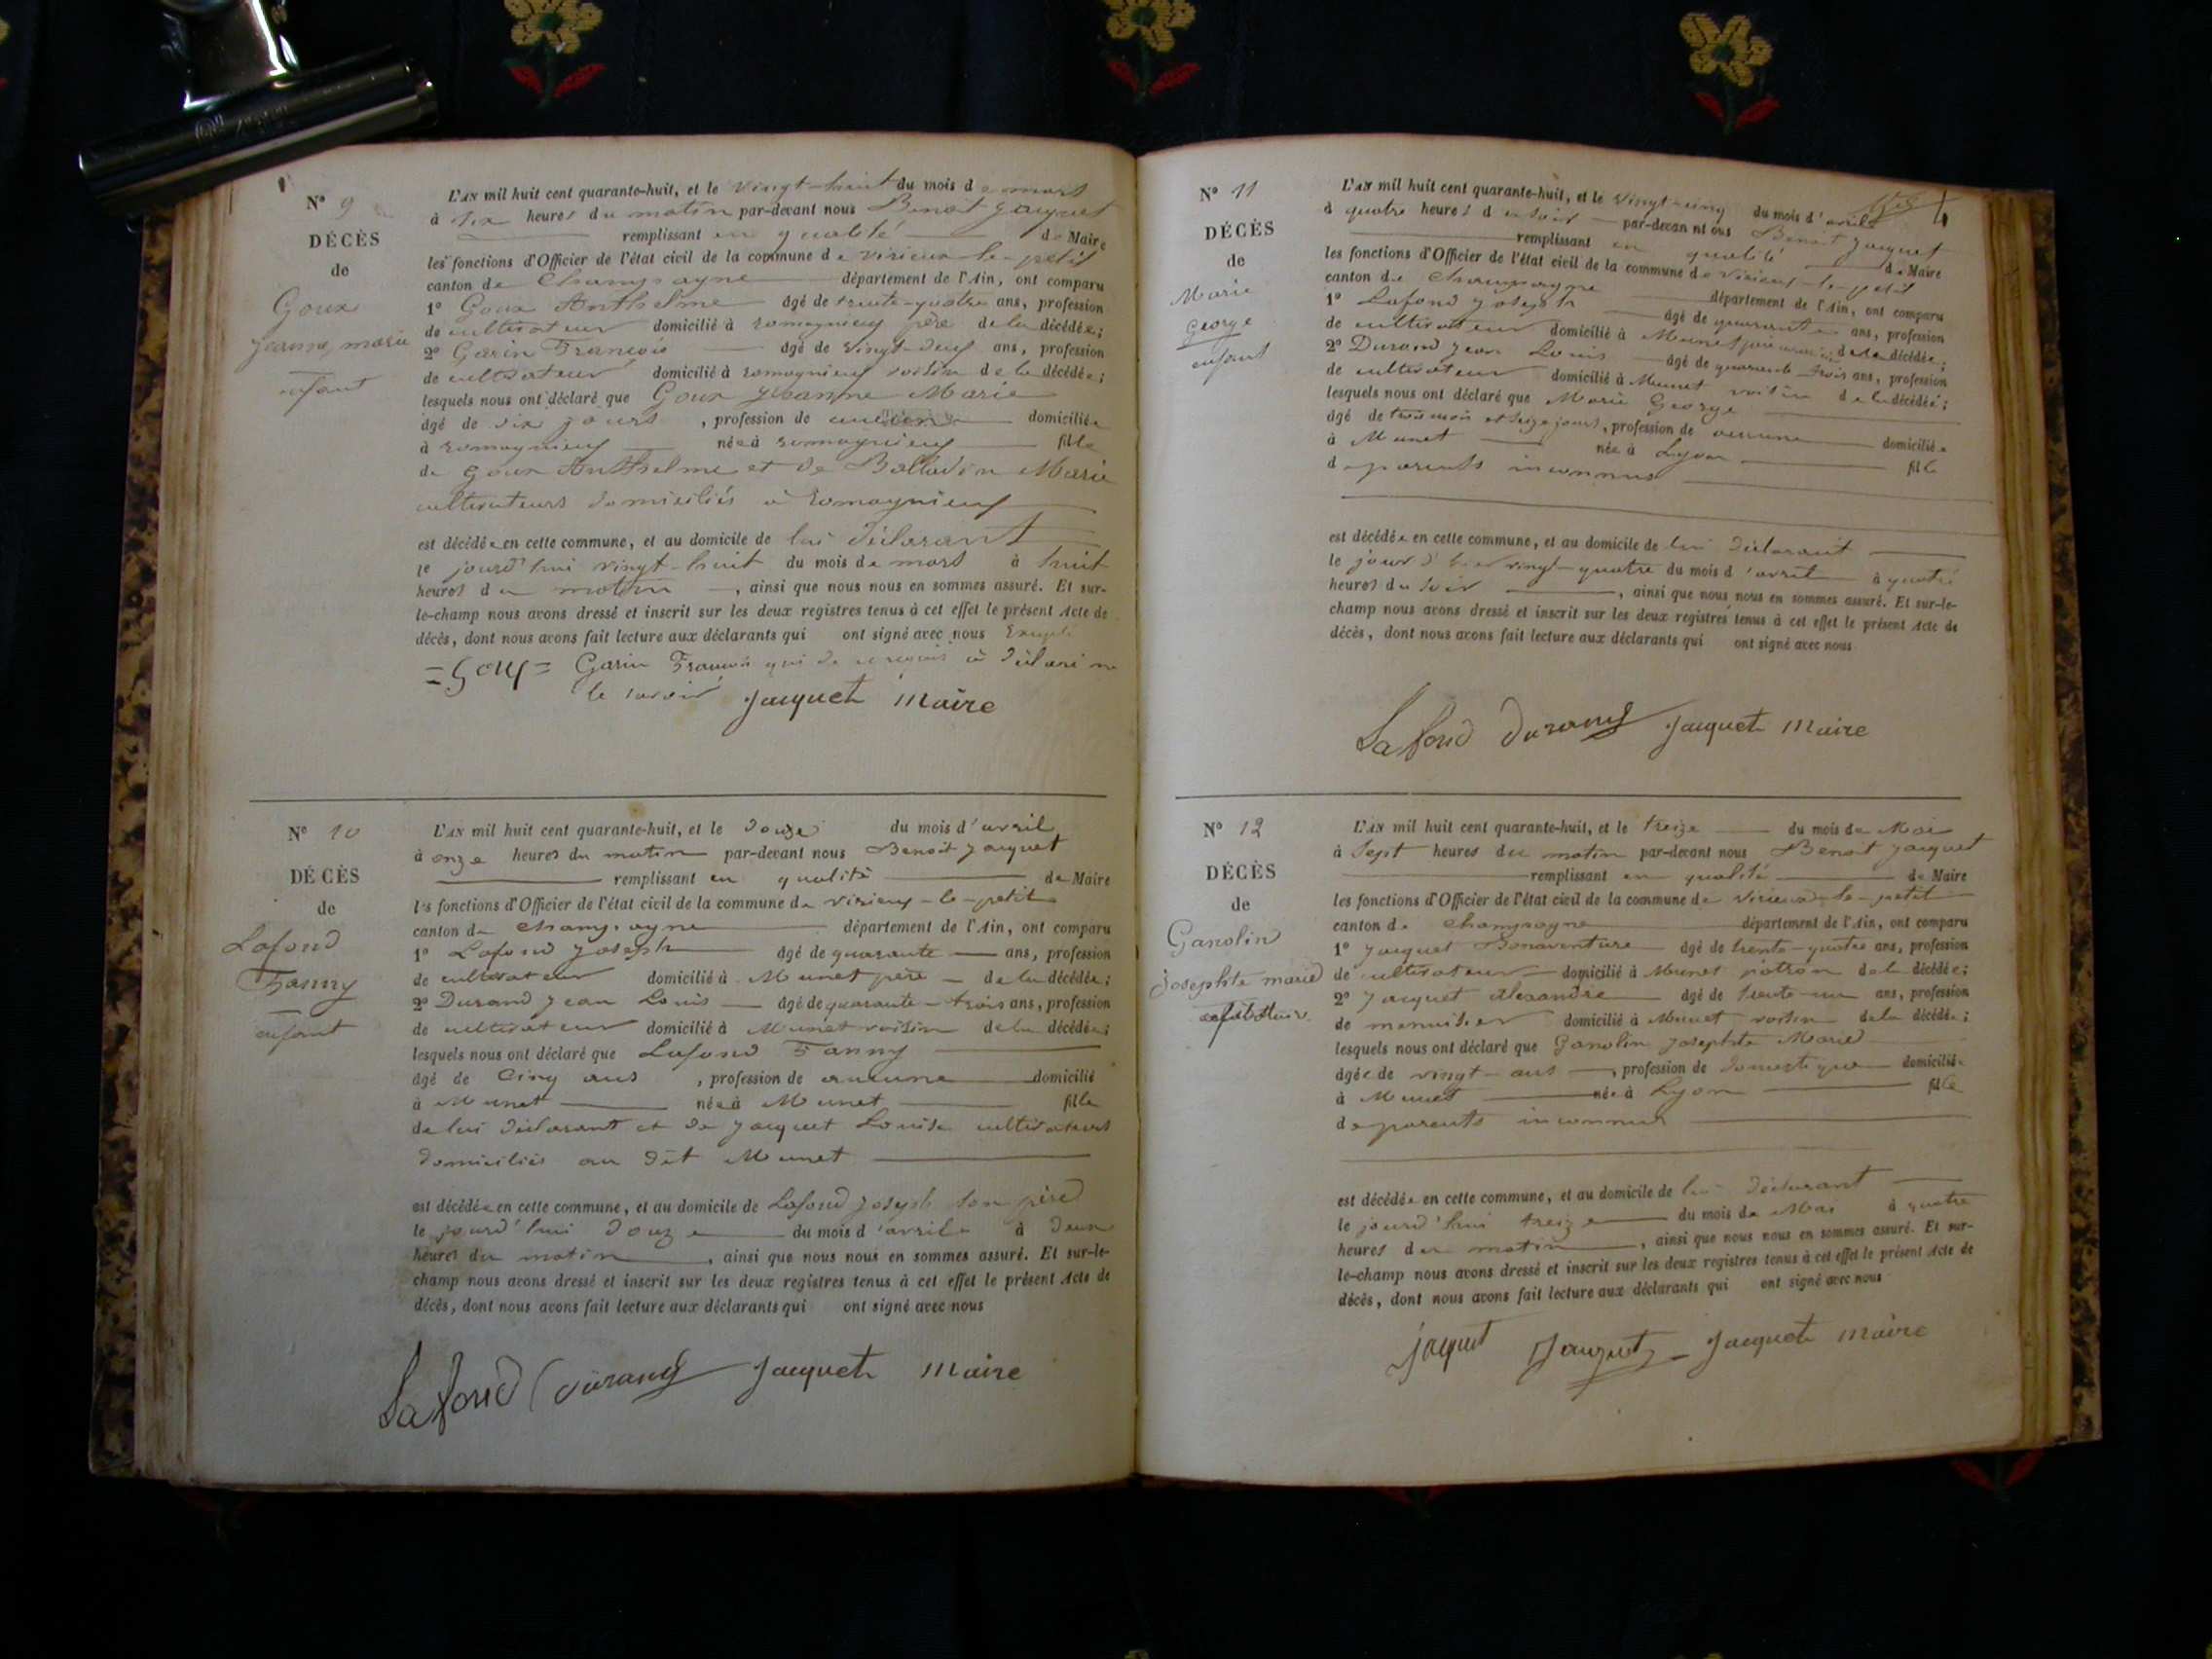 N° 9
DÉCÈS
de
Goux
Jeanne marie
enfant
L'AN mil huit cent quarante-huit, et le vingt-huit du mois de mars
à dix heures du matin par-devant nous Benoit Jacquet
remplissant en qualité de Maire
les fonctions d'Officier de l'état civil de la commune de virieux-le-petit
canton de Champagne département de l'Ain, ont comparu
1° Goux Anthelme âgé de trente-quatre ans, profession
de cultivateur domicilié à romagnieux père de la décédée;
2° Garin François âgé de vingt-deux ans, profession
de cultivateur domicilié à romagnieux voisin de la décédée;
lesquels nous ont déclaré que Goux Jeanne Marie
âgé de six jours, profession de domiciliée
à romagnieux née à romagnieux fille
de goux Anthelme et de Balladin Marie
cultivateurs domiciliés à romagnieux
est décédée en cette commune, et au domicile de lui déclarant
le jourd'hui vingt-huit du mois de mars à huit
heures du matin, ainsi que nous nous en sommes assuré. Et sur-
le-champ nous avons dressé et inscrit sur les deux registres tenus à cet effet le présent Acte de
décès, dont nous avons fait lecture aux déclarants qui ont signé avec nous Excepté
Goux Garin François qui de ce requis a déclaré ne
le savoir Jacquet Maire
N° 10
DÉCÈS
de
Lafond
Fanny
enfant
L'AN mil huit cent quarante-huit, et le douze du mois d'avril
à onze heures du matin par-devant nous Benoit Jacquet
remplissant en qualité de Maire
les fonctions d'Officier de l'état civil de la commune de virieux-le-petit
canton de Champagne département de l'Ain, ont comparu
1° Lafond Joseph âgé de quarante ans, profession
de cultivateur domicilié à Munet père de la décédée;
2° Durand Jean Louis âgé de quarante-trois ans, profession
de cultivateur domicilié à Munet voisin de la décédée;
lesquels nous ont déclaré que Lafond Fanny
âgé de Cinq ans, profession de aucune domicilié
à Munet née à Munet fille
de lui déclarant et de Jacquet Louise cultivateurs
domiciliés au dit Munet
est décédée en cette commune, et au domicile de Lafond Joseph son père
le jourd'hui douze du mois d'avril à deux
heures du matin, ainsi que nous nous en sommes assuré. Et sur-le-
champ nous avons dressé et inscrit sur les deux registres tenus à cet effet le présent Acte de
décès, dont nous avons fait lecture aux déclarants qui ont signé avec nous
Lafond Durand Jacquet Maire
N° 11
DÉCÈS
de
Marie
George
enfant
L'AN mil huit cent quarante-huit, et le vingt-cinq du mois d'avril
à quatre heures du soir par-devant nous Benoit Jacquet
remplissant en qualité de Maire
les fonctions d'Officier de l'état civil de la commune de virieux-le-petit
canton de Champagne département de l'Ain, ont comparu
1° Lafond Joseph âgé de quarante ans, profession
de cultivateur domicilié à Munet de la décédée;
2° Durand Jean Louis âgé de quarante trois ans, profession
de cultivateur domicilié à Munet voisin de la décédée;
lesquels nous ont déclaré que Marie George
âgé de trois mois et seize jours, profession de aucune domiciliée
à Munet née à Lyon fille
de parents inconnus
est décédée en cette commune, et au domicile de lui déclarant
le jour d'hier vingt-quatre du mois d'avril à quatre
heures du soir, ainsi que nous nous en sommes assuré. Et sur-le-
champ nous avons dressé et inscrit sur les deux registres tenus à cet effet le présent Acte de
décès, dont nous avons fait lecture aux déclarants qui ont signé avec nous
Lafond Durand Jacquet Maire
N° 12
DÉCÈS
de
Ganolin
Josephte marie
L'AN mil huit cent quarante-huit, et le treize du mois de Mai
à Sept heures du matin par-devant nous Benoit Jacquet
remplissant en qualité de Maire
les fonctions d'Officier de l'état civil de la commune de virieux-le-petit
canton de Champagne département de l'Ain, ont comparu
1° Jacquet Bonaventure âgé de trente-quatre ans, profession
de cultivateur domicilié à Munet patron de la décédée;
2° Jacquet Alexandre âgé de trente-un ans, profession
de menuisier domicilié à Munet voisin de la décédée;
lesquels nous ont déclaré que Ganolin Josephte Marie
âgée de vingt-ans, profession de domestique domiciliée
à Munet née à Lyon fille
de parents inconnus
est décédée en cette commune, et au domicile de lui déclarant
le jourd'hui treize du mois de Mai à quatre
heures du matin, ainsi que nous nous en sommes assuré. Et sur-
le-champ nous avons dressé et inscrit sur les deux registres tenus à cet effet le présent Acte de
décès, dont nous avons fait lecture aux déclarants qui ont signé avec nous
Jacquet Jacquet Jacquet Maire